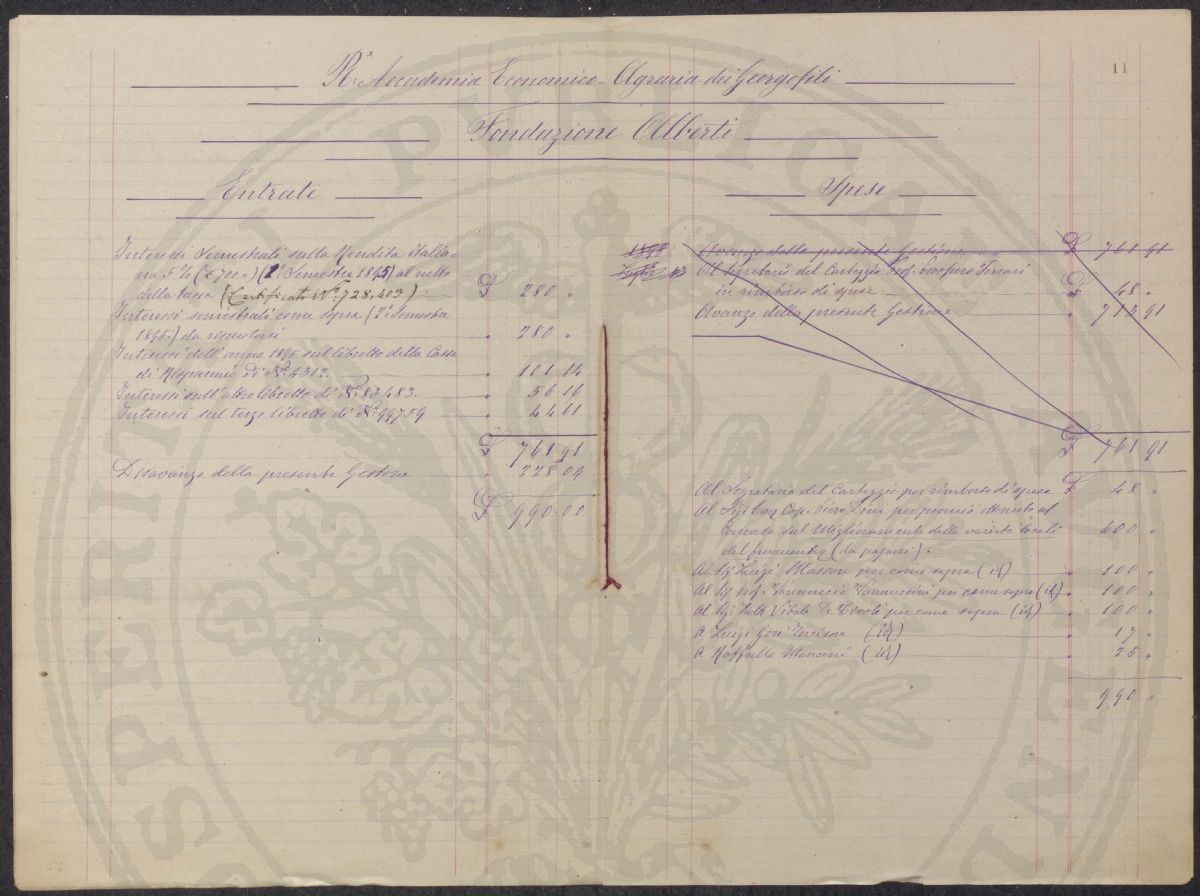 11
R.ª Accademia Economico-Agraria dei Georgofili
Fondazione Alberti
Entrate
Interessi Semestrali sulla Rendita italia-
na 5% (£ 700=) (1º Semestre 1895) al netto
della tassa (Certificato Nº 728,403) £ 280 "
Interessi semestrali come sopra (2º Semestre
1895) da riscuotersi " 280 "
Interessi dell'anno 1895 sul libretto della Cassa
di Risparmio di Nº 4312. " 101 14
Interessi sull'altro libretto di Nº 83483. " 56 16
Interessi sul terzo libretto di Nº 99759 " 44 61
£ 761 91
Disavanzo della presente Gestione " 228 09
£ 990 00
Spese
Avanzo della presente Gestione £ 761 91
Al Segretario del Carteggio Prof. Prospero Ferrari
in rimborso di spese £ 48 "
Avanzo della presente Gestione " 713 91
£ 761 91
Al Segretario del Carteggio per rimborso di spese £ 48 "
Al Sig. Cav. per premio ottenuto al
Concorso sul Miglioramento delle varietà locali
del frumento (da pagarsi). " 600 "
Al Sig. Luigi Masson per come sopra (id) " 100 "
Al Sig. Prof. Vannuccio Vannuccini per come sopra (id). " 100 "
Al Sig. Dott. Vitale De Tivoli per come sopra (id) " 100 "
A Luigi Gori Incisore (id) " 17 "
A Raffaello Mancini (id) " 25 "
990 "
PVBLICAE